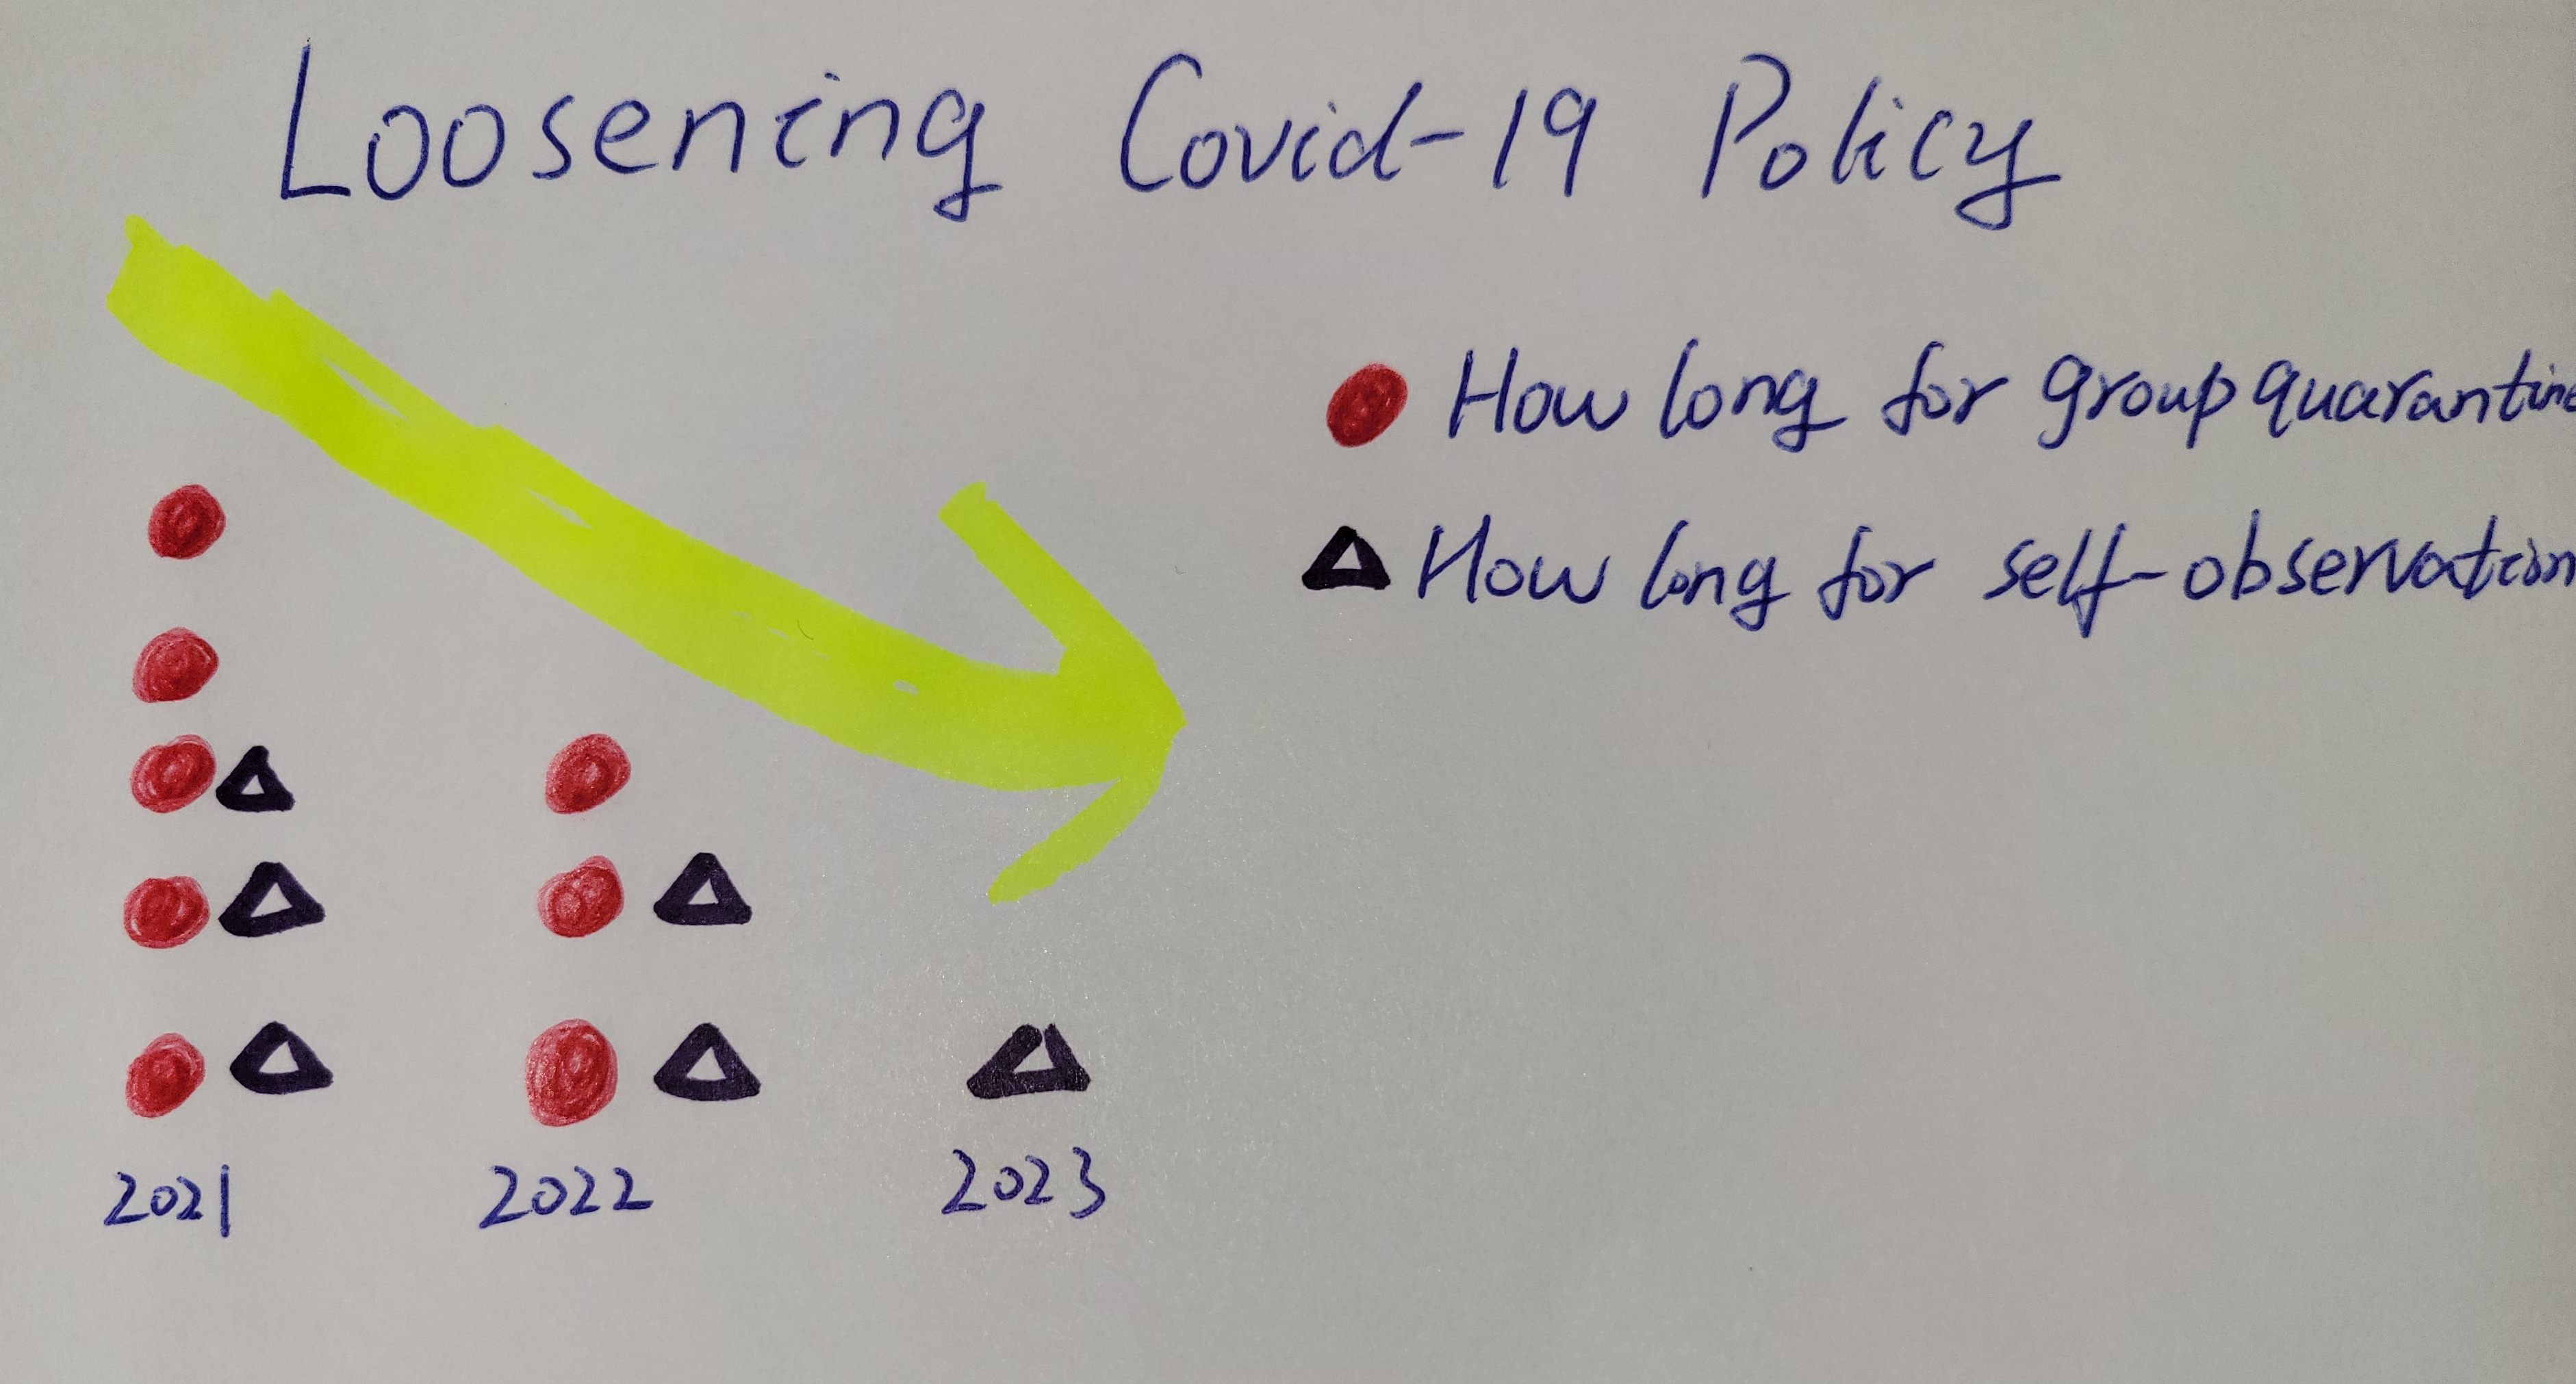 Loosening Covid-19 Policy
How long for group quarantine
How long for self-observation
2021 2022 2023